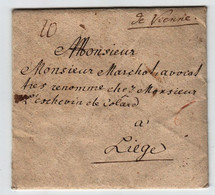 de Vienne.
20
A Monsieur
Monsieur Marchot avocat
tres renommé chez Monsieur
l'eschevin de Colard
à
Liége